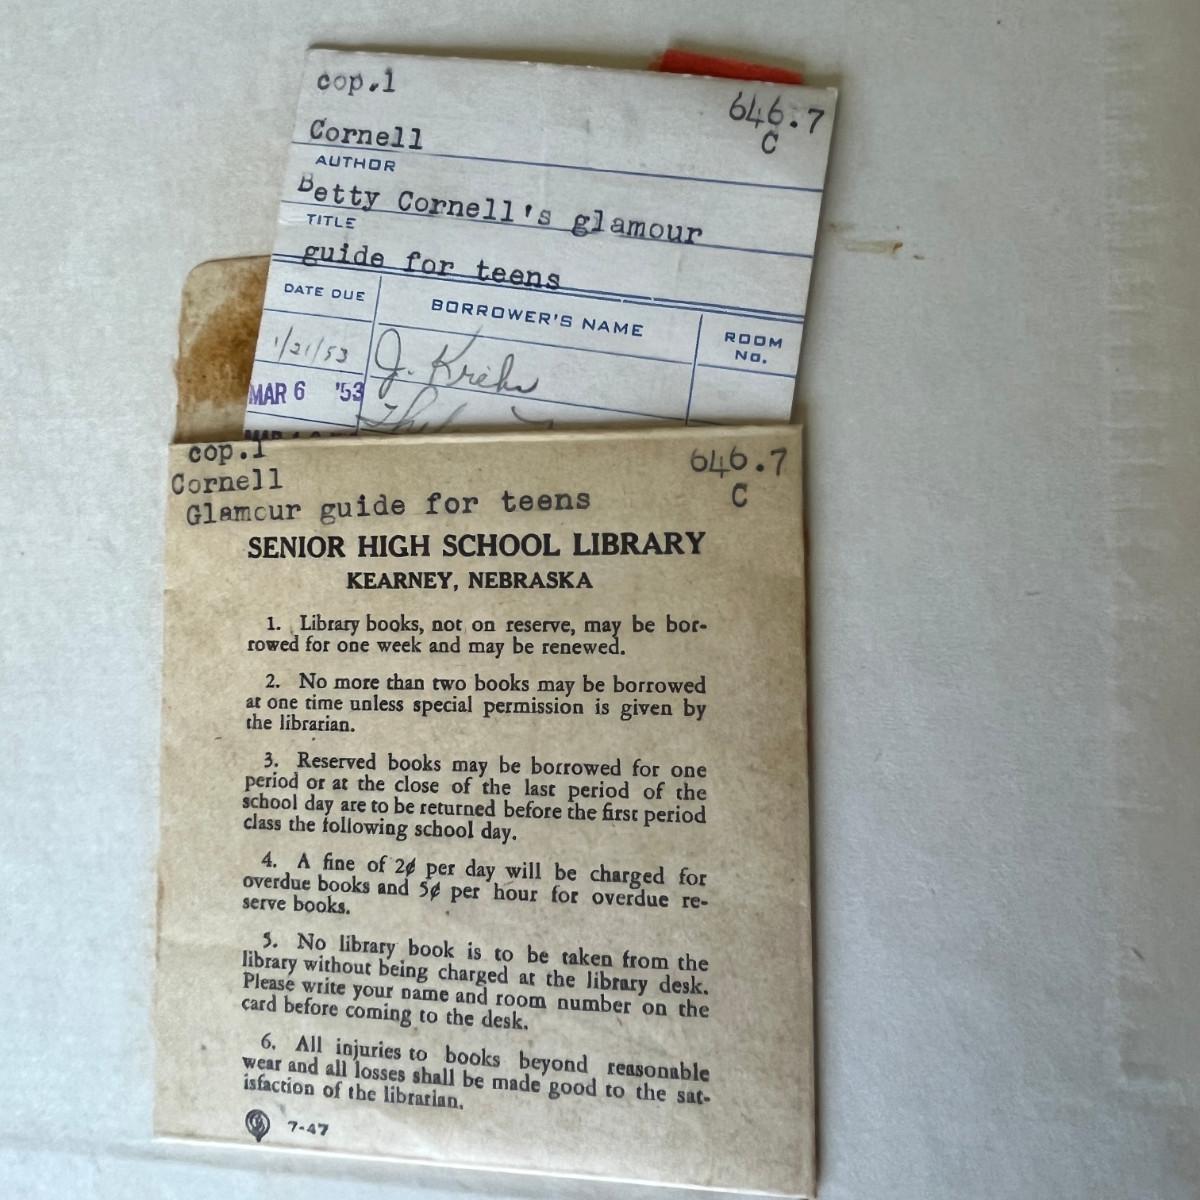 cop.1
646.7
C
Cornell
AUTHOR
Betty Cornell's glamour
TITLE
guide for teens
DATE DUE
BORROWER'S NAME
ROOM
NO.
1/21/53
J. Krehn
MAR 6 '53
cop.1
646.7
Cornell
C
Glamour guide for teens
SENIOR HIGH SCHOOL LIBRARY
KEARNEY, NEBRASKA
1. Library books, not on reserve, may be bor-
rowed for one week and may be renewed.
2. No more than two books may be borrowed
at one time unless special permission is given by
the librarian.
3. Reserved books may be borrowed for one
period or at the close of the last period of the
school day are to be returned before the first period
class the following school day.
4. A fine of 2¢ per day will be charged for
overdue books and 5¢ per hour for overdue re-
serve books.
5. No library book is to be taken from the
library without being charged at the library desk.
Please write your name and room number on the
card before coming to the desk.
6. All injuries to books beyond reasonable
wear and all losses shall be made good to the sat-
isfaction of the librarian.
7-47